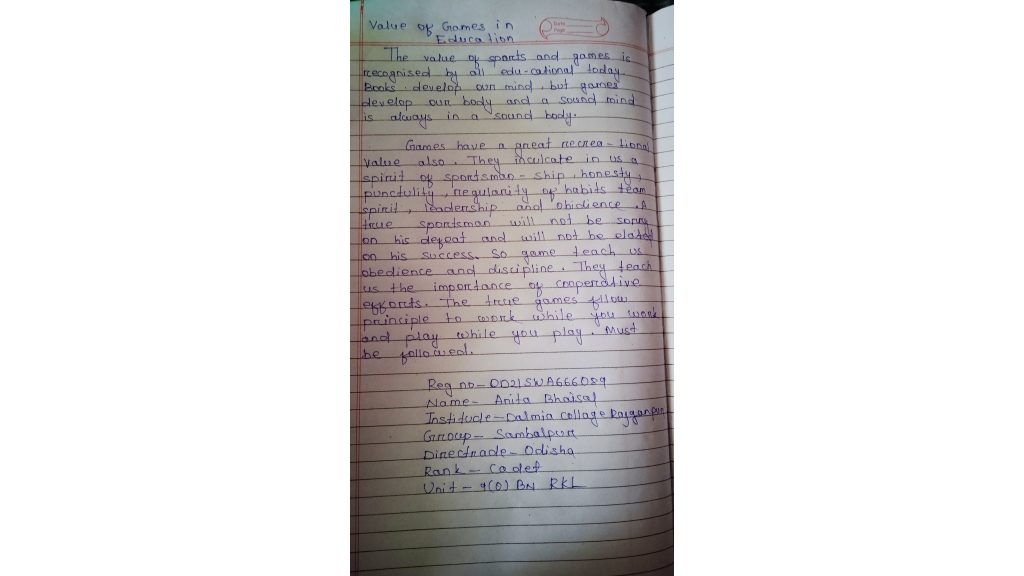 Value of Games in
Education
Date
Page
The value of sports and games is
recognised by all edu-cational today.
Books develop our mind, but games
develop our body and a sound mind
is always in a sound body.
Games have a great recrea-tional
value also. They inculcate in us a
spirit of sportsman-ship, honesty,
punctulity, regularity of habits team
spirit, leadership and obidience. A
true sportsman will not be sorry
on his defeat and will not be elated
on his success. So game teach us
obedience and discipline. They teach
us the importance of cooperative
efforts. The true games follow
principle to work while you work
and play while you play. Must
be followed.
Reg no- OD21SWA666089
Name- Anita Bhaisal
Institude- Dalmia collage Rajganpur
Group- Sambalpur
Directrade- Odisha
Rank- Cadet
Unit- 9(O) BN RKL